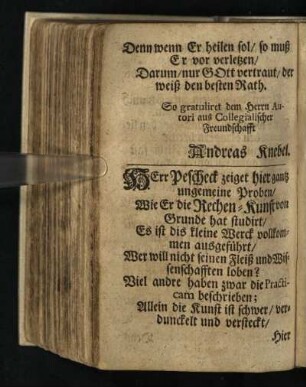 Denn wenn Er heilen sol/ so muß
Er vor verletzen/
Darum/ nur GOtt vertraut/ der
weiß den besten Rath.
So gratuliret dem Herrn Au-
tori aus Collegialischer
Freundschafft
Andreas Knebel.
HErr Pescheck zeiget hier gantz
ungemeine Proben/
Wie Er die Rechen-Kunst von
Grunde hat studirt/
Es ist dis kleine Werck vollkom-
men ausgeführt/
Wer will nicht seinen Fleiß und Wis-
senschafften loben?
Viel andre haben zwar die Practi-
cam beschrieben;
Allein die Kunst ist schwer/ ver-
dunckelt und versteckt/
Hier